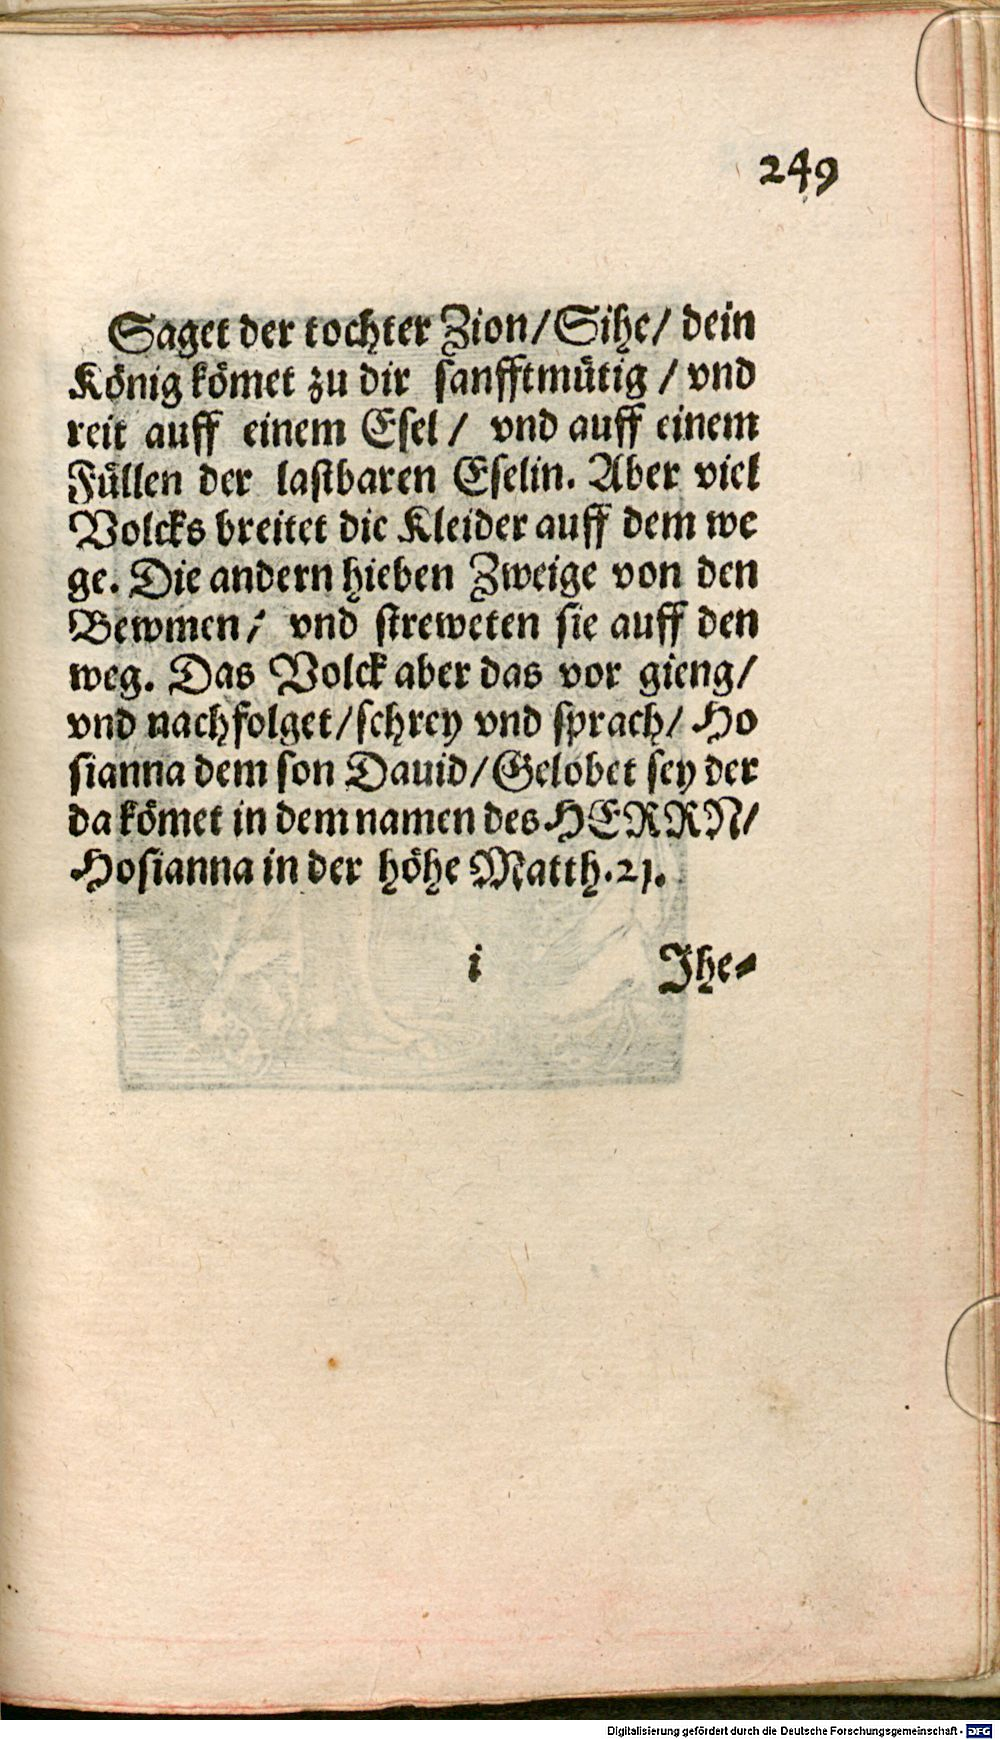 249
Saget der tochter Zion/Sihe/ dein
König kömet zu dir sanfftmütig / vnd
reit auff einem Esel / vnd auff einem
Füllen der lastbaren Eselin. Aber viel
Volcks breitet die Kleider auff dem we
ge. Die andern hieben Zweige von den
Bewmen/ vnd streweten sie auff den
weg. Das Volck aber das vor gieng/
vnd nachfolget/schrey vnd sprach/ Ho
sianna dem son Dauid/Gelobet sey der
da kömet in dem namen des HERRN/
Hosianna in der höhe Matth.21.
i Jhe-
Digitalisierung gefördert durch die Deutsche Forschungsgemeinschaft - DFG